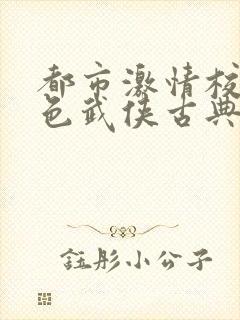 都市激情校
色武侠古典
钰彤小公子